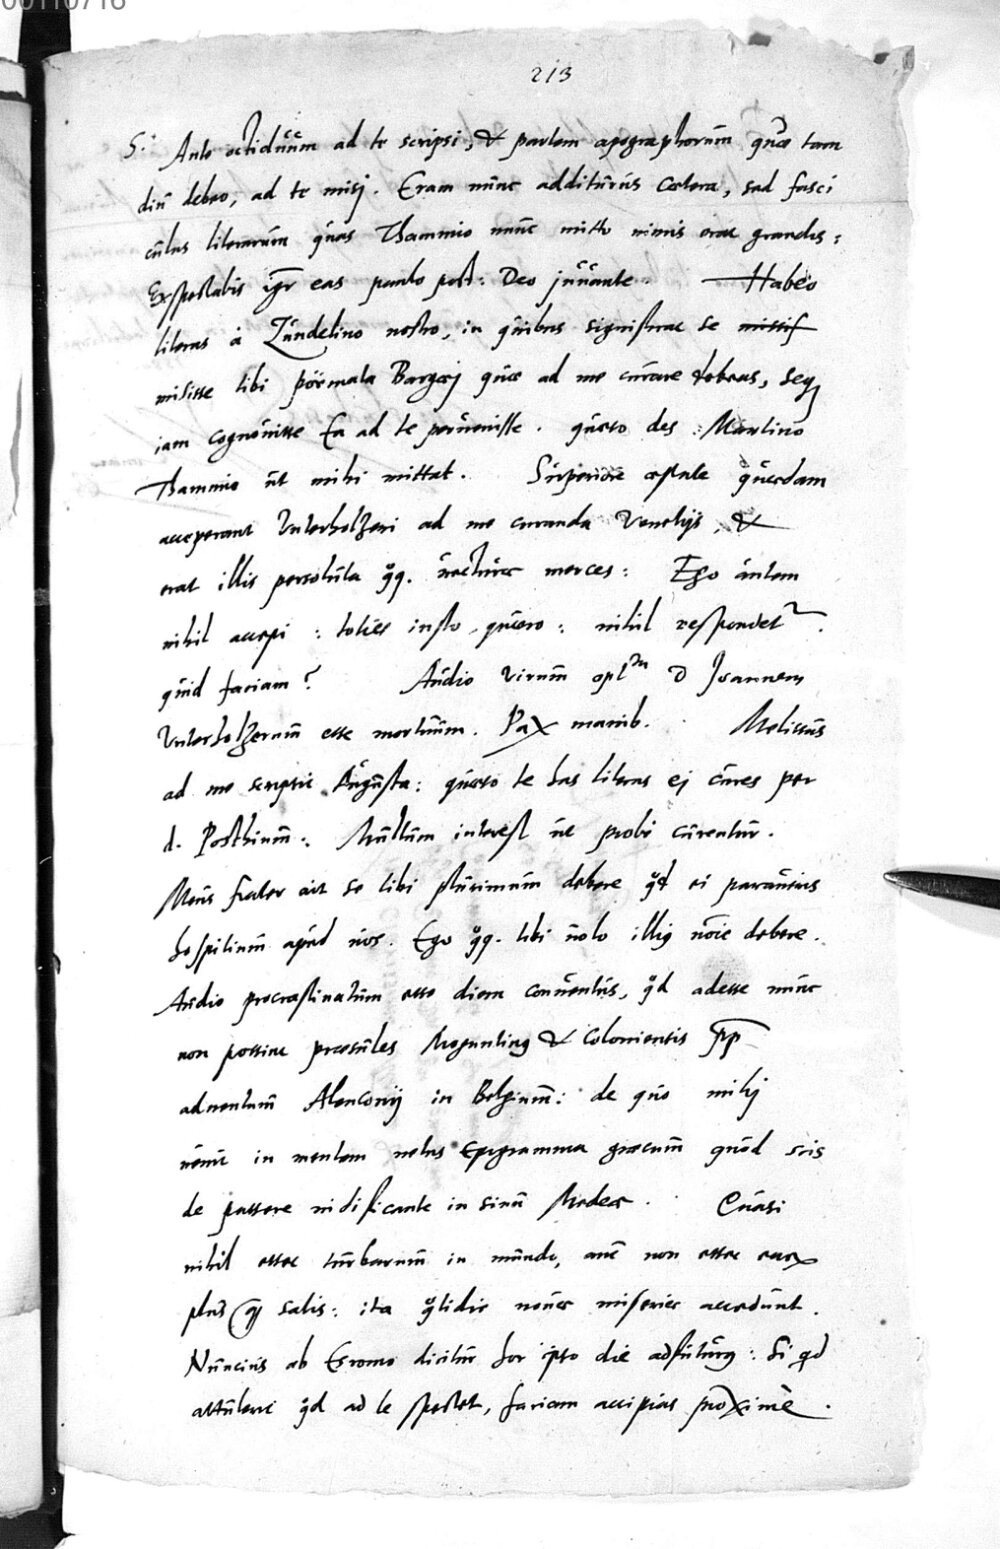 00110716
213
S. Ante octiduum ad te scripsi, & partem apographorum quae tam
diu debeo, ad te misi. Eram nunc additurus caetera, sed fasci
culus literarum quas Thammio nunc mitto nimis erat grandis:
Exspectabis igr eas paulo post: Deo juuante. Habeo
literas à Zundelino nostro, in quibus significat se
misisse tibi poëmata Bargaej quae ad me curare debeas, seq
iam cognouisse Ea ad te peruenisse. quaeso des Martino
Thammio ut mihi mittat. Superiore aestate quaedam
acceperant Unterholzeri ad me curanda Venetijs, &
erat illis persoluta qq. uecturae merces: Ego autem
nihil accepi: toties insto, quaero: nihil respondet.
quid faciam? Audio virum opt D Joannem
Unterholzerum esse mortuum. Pax manib. Melissus
ad me scripsit Augusta: quaeso te has literas ej cures per
d. Posthium: Multum interest ut probè curentur.
Meus frater ait se tibi plurimum debere qd ei paraueris
hospitium apud uos. Ego qq. tibi uolo illig noie debere.
Audio procrastinatum esse diem conuentus, qd adesse nunc
non possint praesules Mogunting & Coloniensis pp
aduentum Alenconij in Belgium: de quo mihj
uenit in mentem uetus Epigramma graecum quod scis
de passere nidificante in sinu Medeae. Quasi
nihil esset turbarum in mundo, aut non esset earx
plus qz satis: ita qtidie nouae miseriae accedunt.
Nuncius ab Eromo dicitur hoc ipso die adfuturg: Si qd
attulerit qd ad te spectet, faciam accipias proximè.